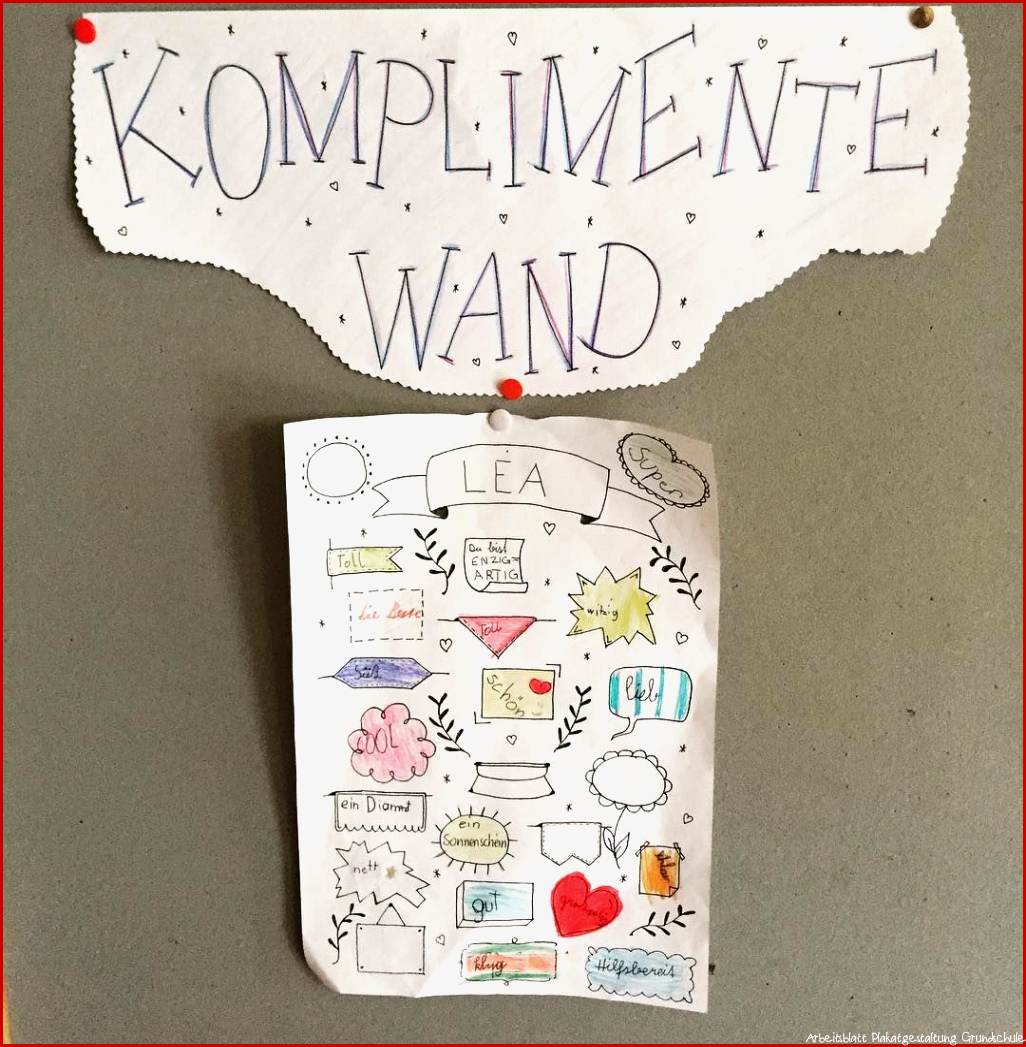 KOMPLIMENTE
WAND
LEA
Super
Toll
Du bist
ENZIG=
ARTIG
witzig
die Beste
Toll
Süß
schön
lieb
COOL
ein Diammt
ein
Sonnenschein
nett
gut
klug
Hilfsbereit
Arbeitsblatt Plakatgestaltung Grundschule